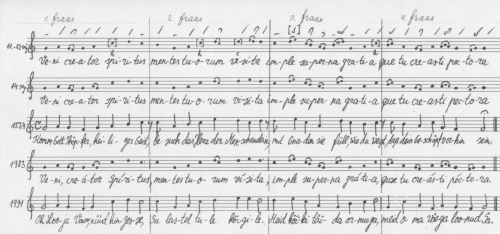 1. fraas 2. fraas 3. fraas 4. fraas
11.-12.saj
Ve-ni cre-a-tor spi-ri-tus men-tes tu-o-rum vi-si-ta im-ple su-per-na gra-ti-a que tu cre-as-ti pec-to-ra
14. saj
Ve-ni cre-a-tor spi-ri-tus men-tes tu-o-rum vi-si-ta im-ple su-per-na gra-ti-a que tu cre-as-ti pec-to-ra
1524
Komm Gott Schöp-fer, hei-li-ger Geist, be-such das Herz der Men-schen dein, mit Gna-den sie füll, wie du weißt, daß dein Ge-schöpf vor-hin sein.
1983
Ve-ni, cre-á-tor Spí-ri-tus, men-tes tu-ó-rum ví-si-ta, im-ple su-pér-na grá-ti-a, quae tu cre-á-sti péc-to-ra.
1991
Oh Loo-ja Vaim, nüüd hin-ge-sse, Su las-tel tu-le kõi-gi-le. Head kõi-ki täi-da ar-mu-ga, meid o-ma väe-ga loo-nud Sa.